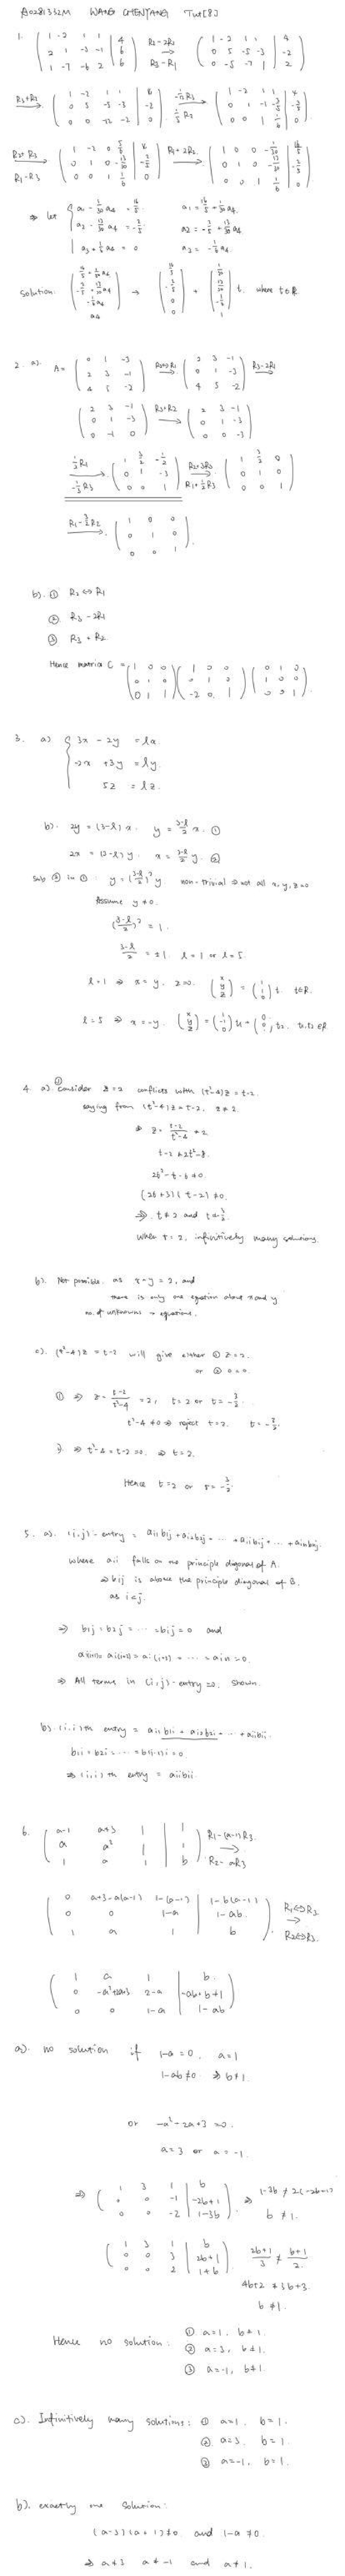 WANG CHENYANG Tut[8]
1. ( 1 -2 1 1 | 4
2 1 -3 -1 | 6
1 -7 -6 2 | 6 ) R2-2R1 → R3-R1 ( 1 -2 1 1 | 4
0 5 -5 -3 | -2
0 -5 -7 1 | 2 )
R3+R2 → ( 1 -2 1 1 | 4
0 5 -5 -3 | -2
0 0 -12 -2 | 0 )
R1-R3
R1+2R2
⇒ let
Solution:
where t∈R
2. a). A = ( 0 1 -3
2 3 -1
4 5 -2 ) R2↔R1 → ( 2 3 -1
0 1 -3
4 5 -2 ) R3-2R1 →
( 2 3 -1
0 1 -3
0 -1 0 ) R3+R2 → ( 2 3 -1
0 1 -3
0 0 -3 )
½R1 -⅓R3 → ( 1 3/2 -½
0 1 -3
0 0 1 ) R2+3R3 → R1+½R3 ( 1 3/2 0
0 1 0
0 0 1 )
R1-3/2R2 → ( 1 0 0
0 1 0
0 0 1 ).
b). ① R2 ↔ R1
② R3 - 2R1
③ R3 + R2
Hence matrix C = ( 1 0 0
0 1 0
0 1 1 ) ( 1 0 0
0 1 0
-2 0 1 ) ( 0 1 0
1 0 0
0 0 1 ).
3. a) { 3x - 2y = lx.
-2x + 3y = ly.
5z = lz.
b). 2y = (3-l)x. y = (3-l)/2 x. ①
2x = (3-l)y. x = (3-l)/2 y. ②
Sub ② in ①: y = ((3-l)/2)² y non-trivial ⇒ not all x, y, z = 0
Assume y ≠ 0.
((3-l)/2)² = 1.
(3-l)/2 = ±1. l = 1 or l = 5.
l = 1 ⇒ x = y, z = 0. (x y z) = (1 1 0) t. t∈R.
l = 5 ⇒ x = -y.
4. a) ① Consider z = 2 conflicts with (t²-4)z = t-2.
saying from (t²-4)z = t-2, z ≠ 2.
⇒ z = (t-2)/(t²-4) ≠ 2
t-2 ≠ 2t²-8.
2t²-t-6 ≠ 0.
(2t+3)(t-2) ≠ 0.
When t = 2, infinitively many solutions.
b). Not possible. as x+y = 2, and
there is only one equation about x and y
no. of unknowns > equations.
c). (t²-4)z = t-2 will give either ① z = 2.
or ② 0 = 0.
① ⇒ z = (t-2)/(t²-4) = 2, t = 2 or t = -3/2.
t²-4 ≠ 0 ⇒ reject t = 2. t = -3/2.
② ⇒ t²-4 = t-2 = 0. ⇒ t = 2.
Hence t = 2 or t = -3/2.
5. a). (i,j)-entry = ai1b1j + ai2b2j + ... + aiibij + ... + ainbnj.
where aii falls on the principle diagonal of A.
⇒ bij is above the principle diagonal of B.
as i<j.
⇒ b1j = b2j = ... = bij = 0 and
= ... = ain = 0.
⇒ All terms in (i,j)-entry = 0. shown.
b). (i,i)th entry = ai1b1i + ai2b2i + ... + aiibii.
b1i = b2i = ... = b(i-1)i = 0
⇒ (i,i)th entry = aiibii.
6. ( a-1 a+3 1 | 1
a a² 1 | 1
1 a 1 | b ) R1-(a-1)R3 → R2-aR3
( 0 a+3-a(a-1) 1-(a-1) | 1-b(a-1)
0 0 1-a | 1-ab
1 a 1 | b ). R1↔R3 → R2↔R3.
( 1 a 1 | b
0 -a²+2a+3 2-a | -ab+b+1
0 0 1-a | 1-ab )
a). no solution if 1-a = 0. a = 1
1-ab ≠ 0 ⇒ b ≠ 1.
or -a²-2a+3 = 0.
a = 3 or a = -1.
⇒ ( 1 3 1 | b
0 0 -1 | -2b+1
0 0 -2 | 1-3b ). ⇒ 1-3b ≠ 2(-2b+1)
b ≠ 1.
( 1 3 1 | b
0 0 3 | 2b+1
0 0 2 | 1+b ). (2b+1)/3 ≠ (b+1)/2
4b+2 ≠ 3b+3.
b ≠ 1.
Hence no solution: ① a=1, b≠1.
② a=3, b≠1.
③ a=-1, b≠1.
c). Infinitively many solutions: ① a=1. b=1.
② a=3. b=1.
③ a=-1, b=1.
b). exactly one solution:
(a-3)(a+1) ≠ 0 and 1-a ≠ 0.
⇒ a≠3 a≠-1 and a≠1.